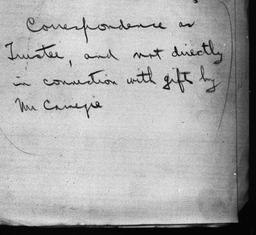 Correspondence as
Trustee, and not directly
in connection with gifts by
Mr Carnegie